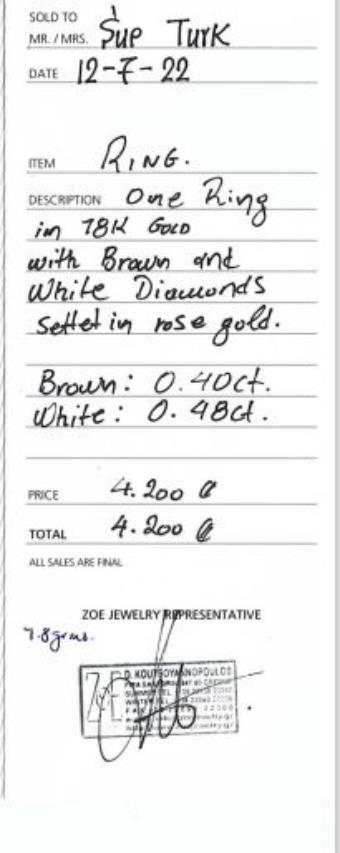 SOLD TO
MR. / MRS. Sue Turk
DATE 12-7-22
ITEM RING.
DESCRIPTION One Ring
in 18K GOLD
with Brown and
White Diamonds
settet in rose gold.
Brown: 0.40ct.
White: 0.48ct.
PRICE 4.200 €
TOTAL 4.200 €
ALL SALES ARE FINAL
ZOE JEWELRY REPRESENTATIVE
7.8grms.
ZOE
D. KOUTSOYANNOPOULOS